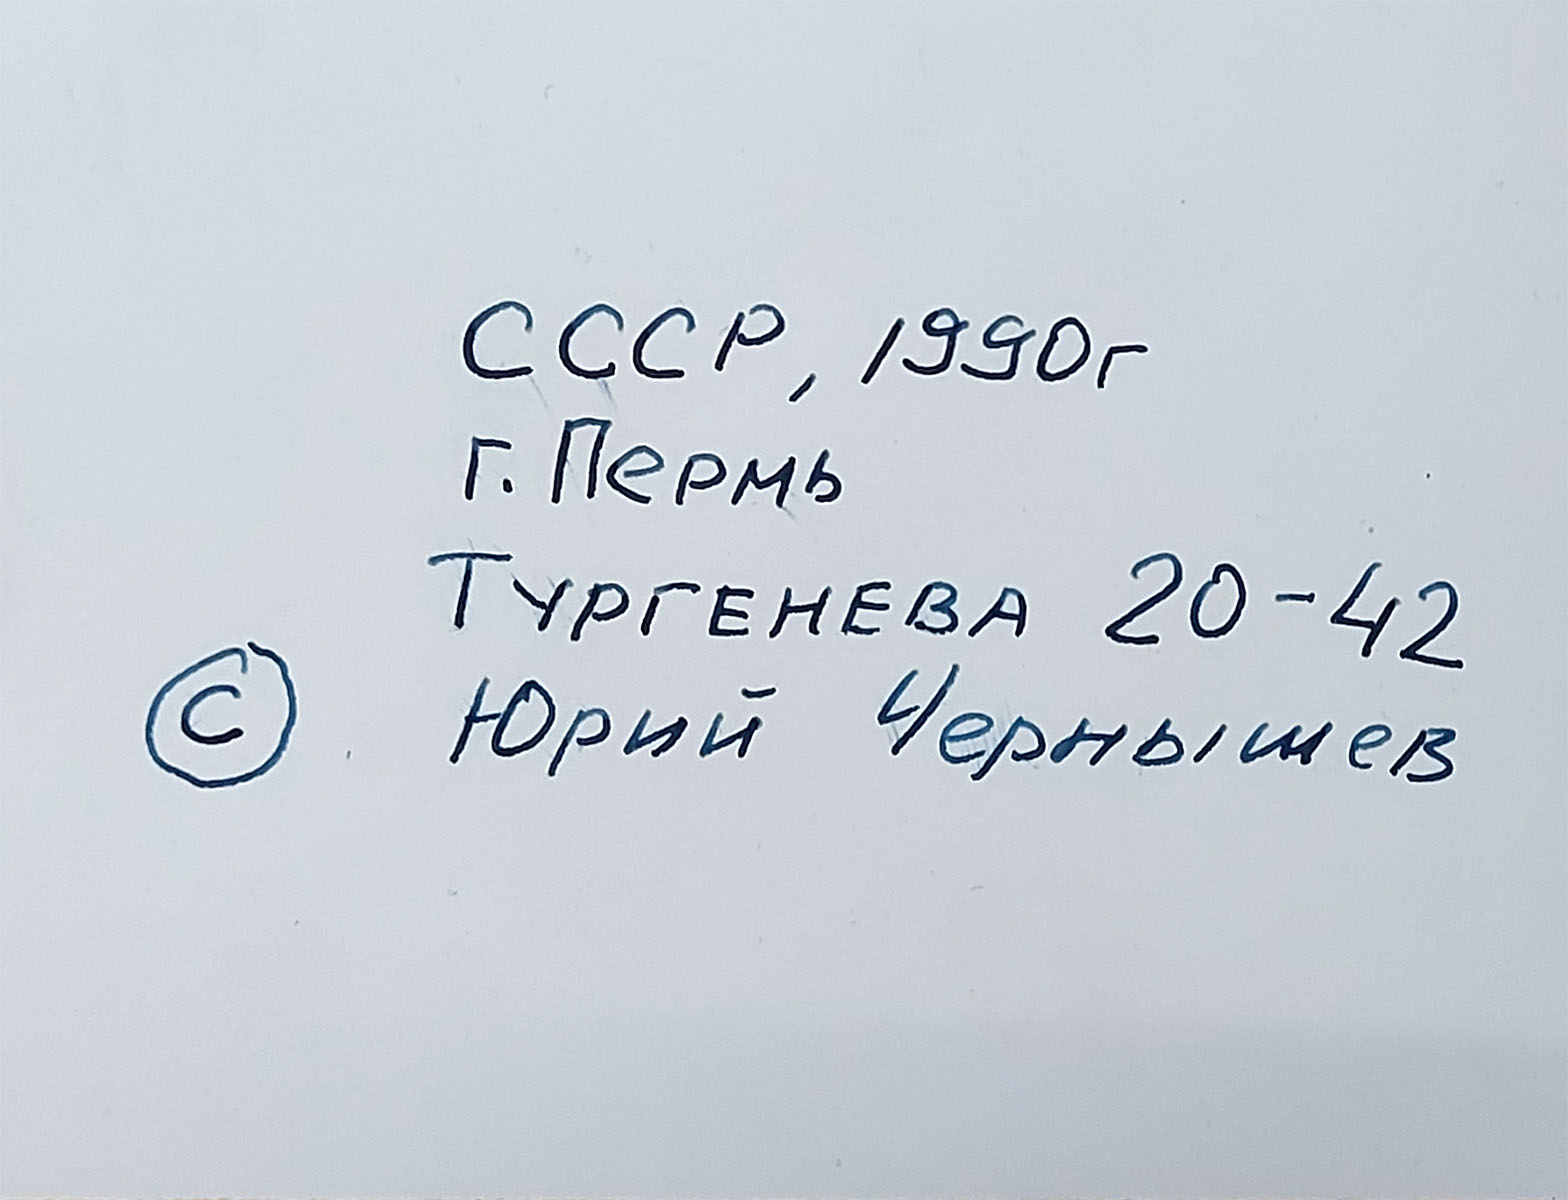 СССР, 1990г
г. Пермь
Тургенева 20-42
© Юрий Чернышев